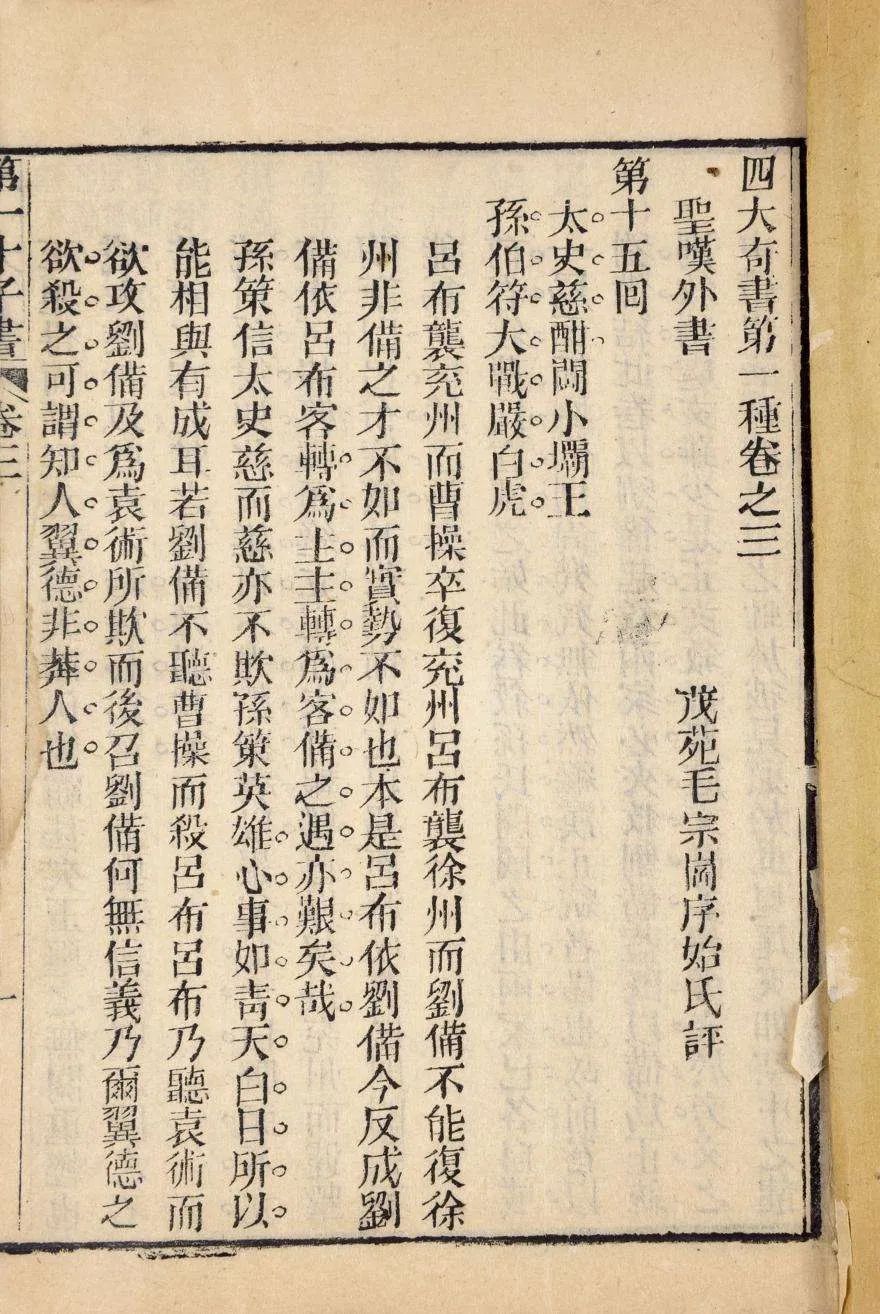 四大奇書第一種卷之三
聖嘆外書
茂苑毛宗崗序始氏評
第十五回
太史慈酣鬬小壩王
孫伯符大戰嚴白虎
呂布襲兗州而曹操卒復兗州呂布襲徐州而劉備不能復徐
州非備之才不如而實勢不如也本是呂布依劉備今反成劉
備依呂布客轉爲主主轉爲客備之遇亦艱矣哉
孫策信太史慈而慈亦不欺孫策英雄心事如靑天白日所以
能相與有成耳若劉備不聽曹操而殺呂布呂布乃聽袁術而
欲攻劉備及爲袁術所欺而後召劉備何無信義乃爾翼德之
欲殺之可謂知人翼德非莽人也
第一才子書
卷三
一